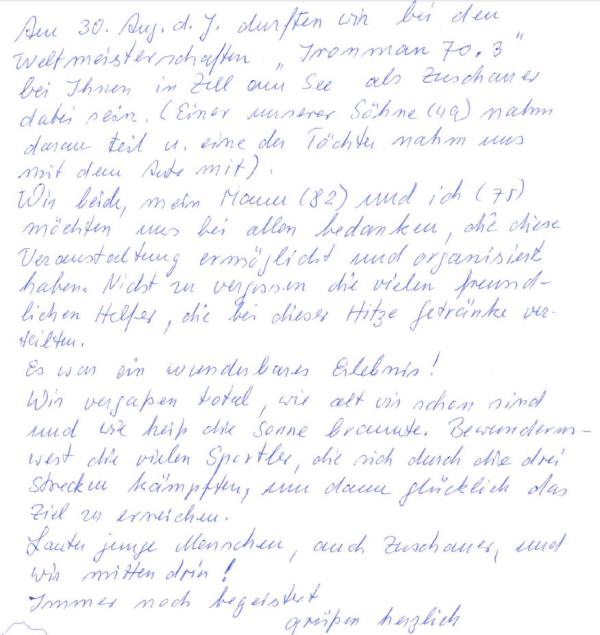 Am 30. Aug. d. J. durften wir bei den
Weltmeisterschaften „Ironman 70.3"
bei Ihnen in Zell am See als Zuschauer
dabei sein. (Einer unserer Söhne (49) nahm
daran teil u. eine der Töchter nahm uns
mit dem Auto mit).
Wir beide, mein Mann (82) und ich (75)
möchten uns bei allen bedanken, die diese
Veranstaltung ermöglicht und organisiert
haben. Nicht zu vergessen die vielen freund-
lichen Helfer, die bei dieser Hitze Getränke ver-
teilten.
Es war ein wunderbares Erlebnis!
Wir vergaßen total, wie alt wir schon sind
und wie heiß die Sonne brannte. Bewunderns-
wert die vielen Sportler, die sich durch die drei
Strecken kämpften, um dann glücklich das
Ziel zu erreichen.
Lauter junge Menschen, auch Zuschauer, und
wir mitten drin!
Immer noch begeistert
grüßen herzlich